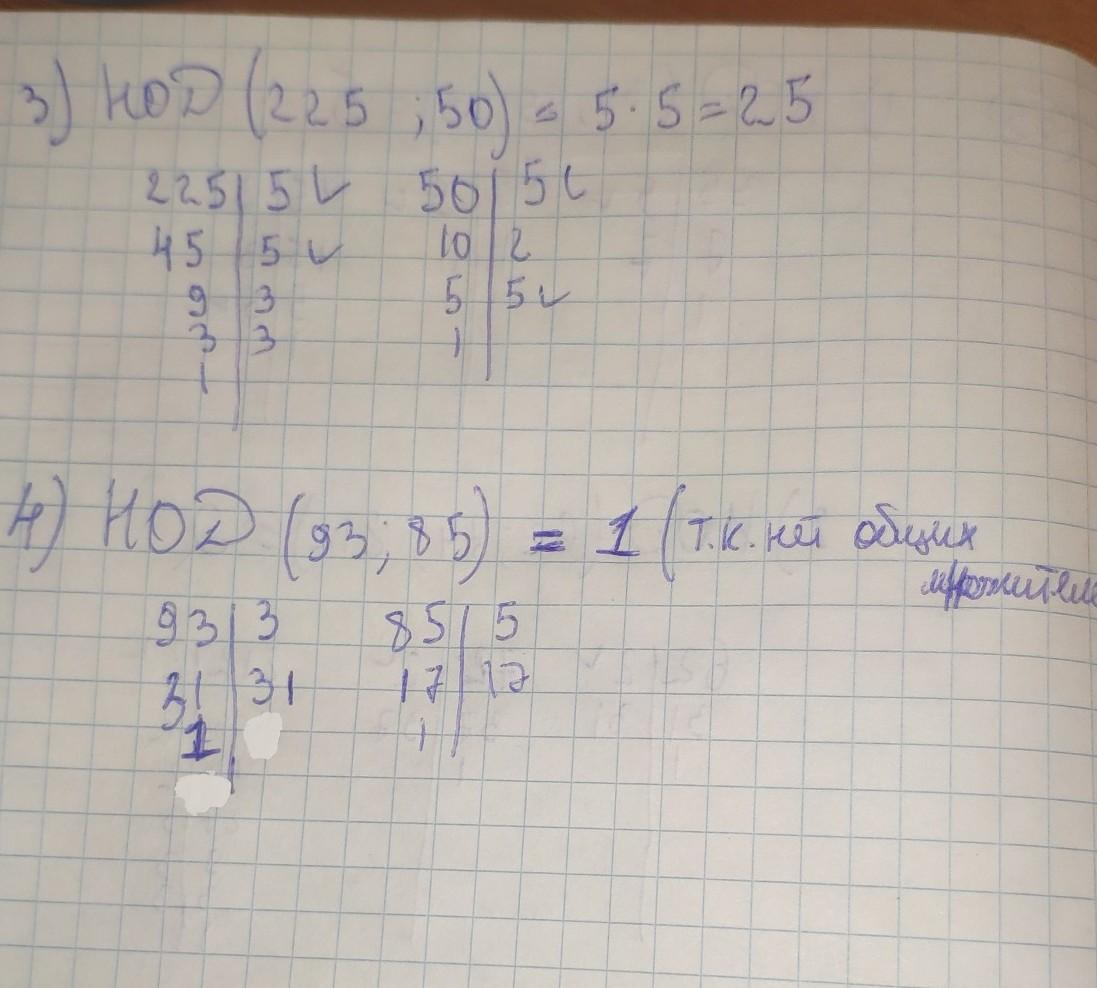 3) НОД (225 ;50) = 5·5=25
225 | 5 ✓ 50 | 5 ✓
45 | 5 ✓ 10 | 2
9 | 3 5 | 5 ✓
3 | 3 1 |
1 |
4) НОД (93; 85) = 1 (т.к. нет общих
множителе
93 | 3 85 | 5
31 | 31 17 | 17
1 | 1 |